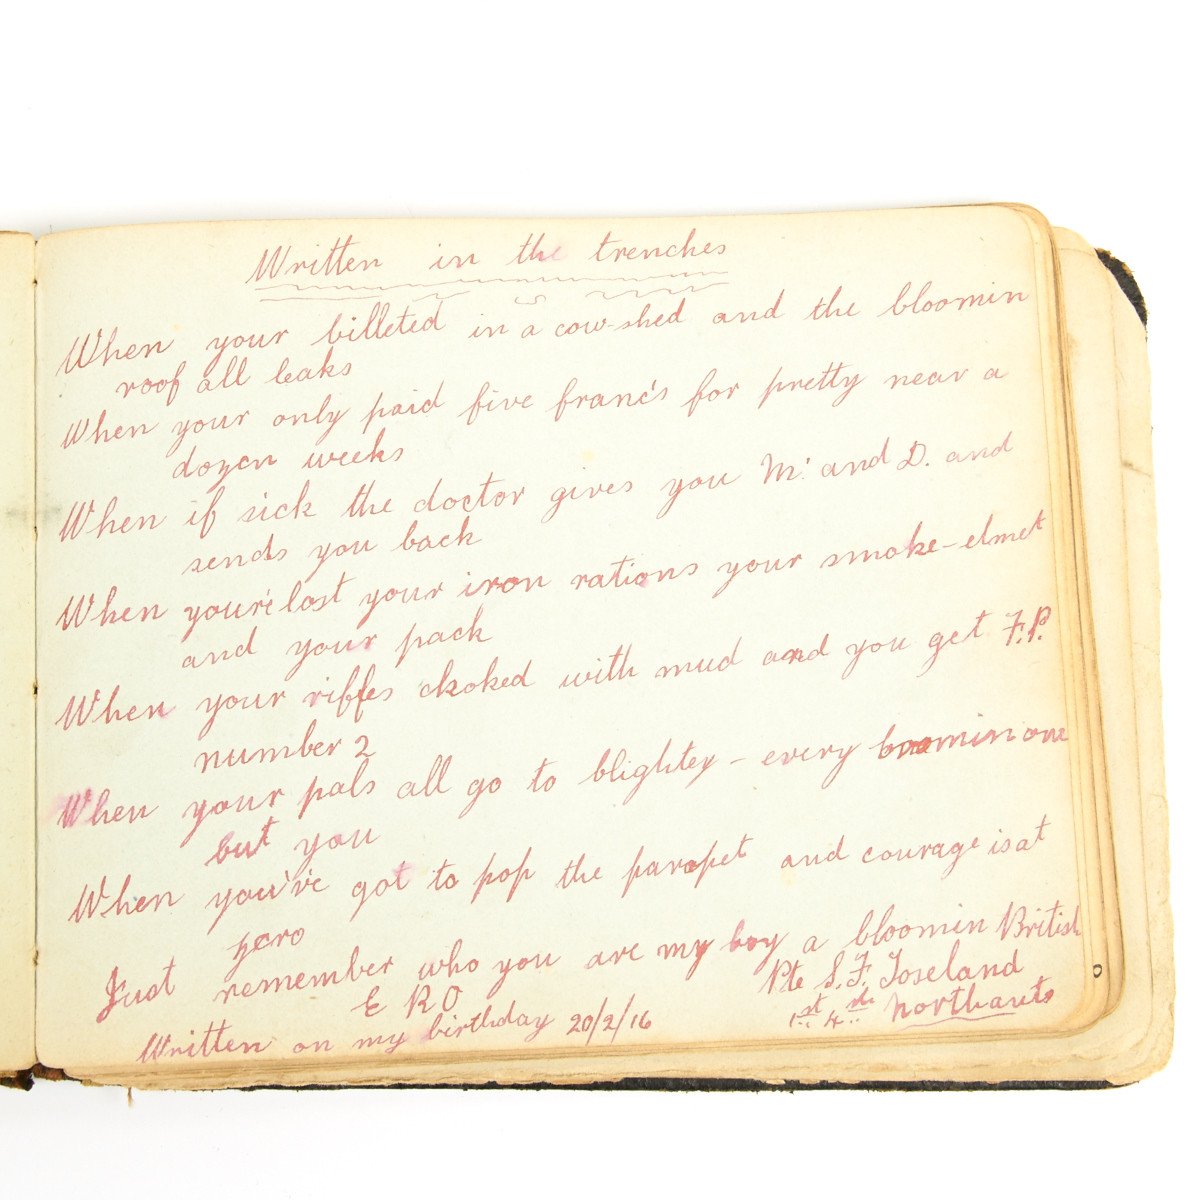 Written in the trenches
When your billeted in a cow-shed and the bloomin
roof all leaks
When your only paid five franc's for pretty near a
dozen weeks
When if sick the doctor gives you M. and D. and
sends you back
When you're lost your iron rations your smoke-elmet
and your pack
When your riffes ckoked with mud and you get F.P.
number 2
When your pals all go to blightey - every bloomin one
but you
When you've got to pop the parapet and courage is at
zero
Just remember who you are my boy a bloomin British
E R O
Pte S. F. Joseland
1st 4th Northants
Written on my birthday 20/2/16